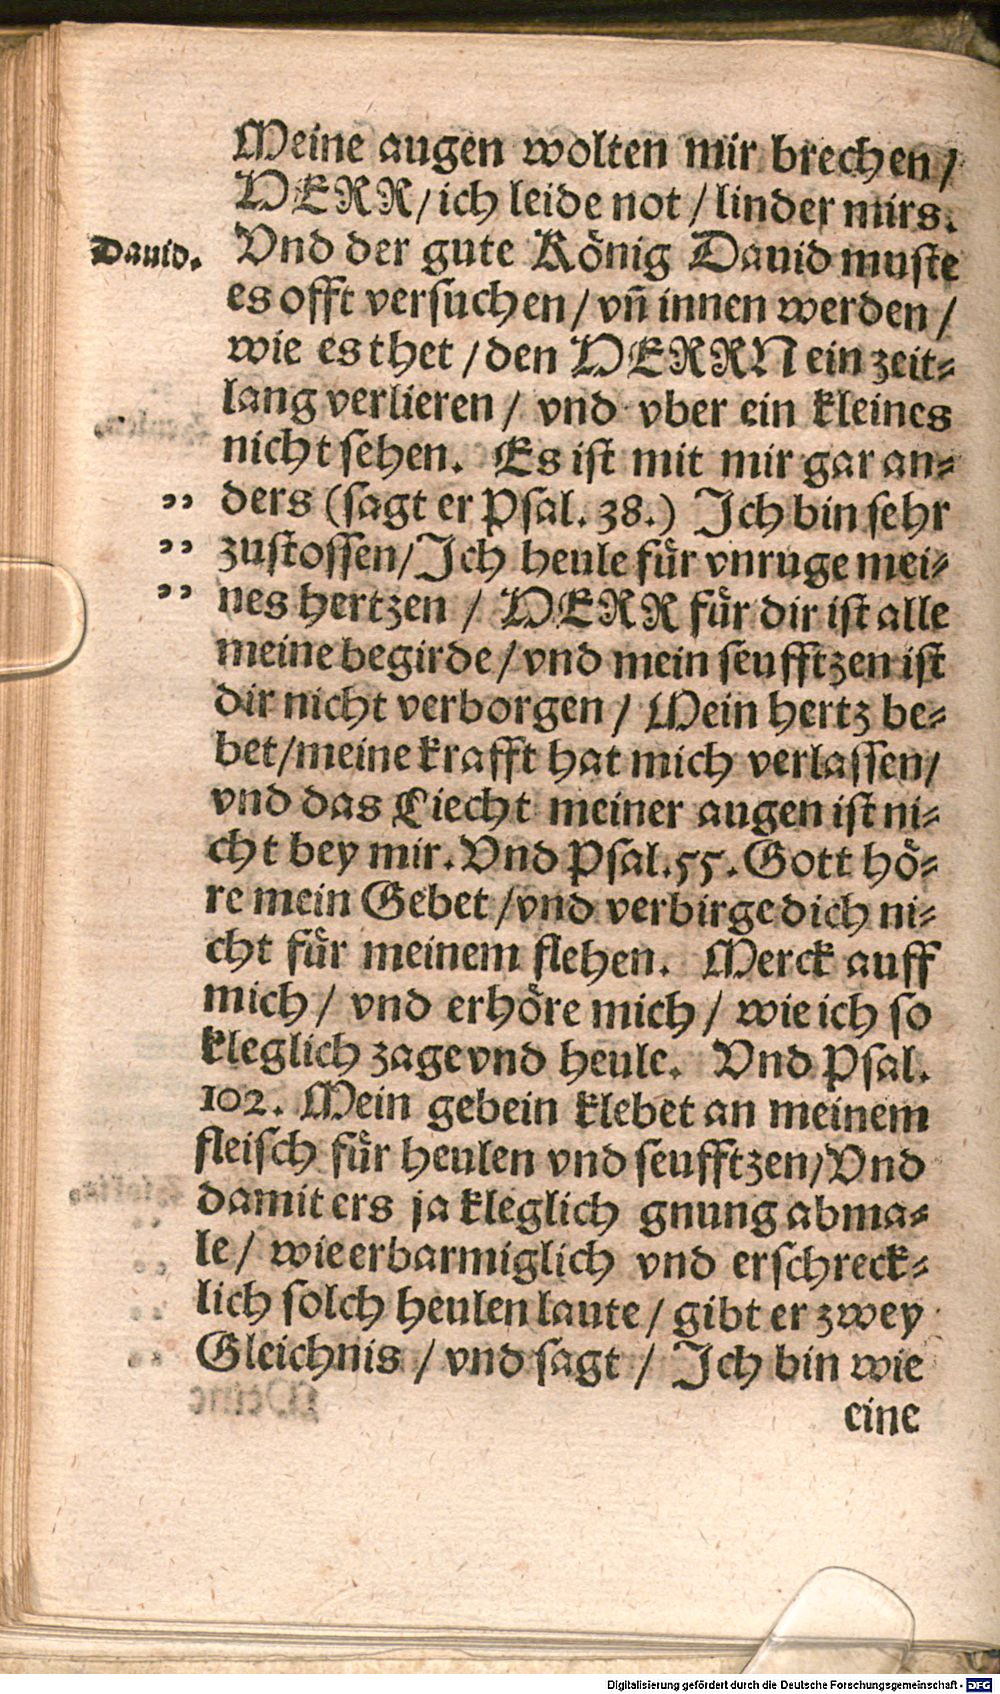 Meine augen wolten mir brechen /
HERR / ich leide not / linder mirs.
Dauid.
Vnd der gute König Dauid muste
es offt versuchen / vñ innen werden /
wie es thet / den HERRN ein zeit=
lang verlieren / vnd vber ein kleines
nicht sehen. Es ist mit mir gar an=
ders (sagt er Psal. 38.) Ich bin sehr
zustossen / Ich heule für vnruge mei=
nes hertzen / HERR für dir ist alle
meine begirde / vnd mein seufftzen ist
dir nicht verborgen / Mein hertz be=
bet / meine krafft hat mich verlassen /
vnd das Liecht meiner augen ist ni=
cht bey mir. Vnd Psal. 55. Gott hö=
re mein Gebet / vnd verbirge dich ni=
cht für meinem flehen. Merck auff
mich / vnd erhöre mich / wie ich so
kleglich zage vnd heule. Vnd Psal.
102. Mein gebein klebet an meinem
fleisch für heulen vnd seufftzen / Vnd
damit ers ja kleglich gnung abma=
le / wie erbarmiglich vnd erschreck=
lich solch heulen laute / gibt er zwey
Gleichnis / vnd sagt / Ich bin wie
eine
Digitalisierung gefördert durch die Deutsche Forschungsgemeinschaft - DFG